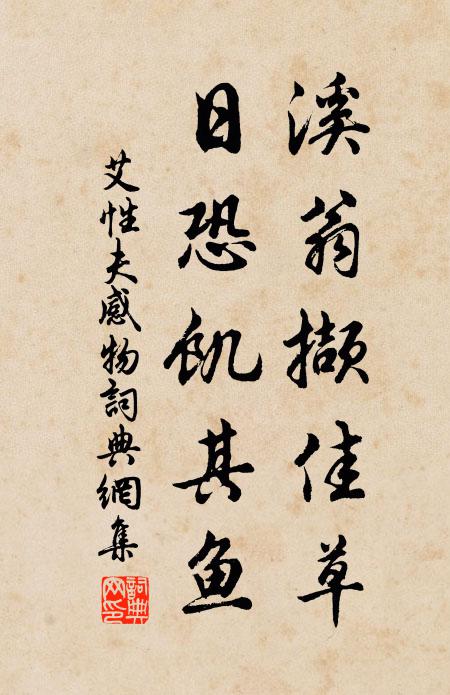 溪翁擷佳草
日恐飢其魚
艾性夫感物詞典網集
詞典網印